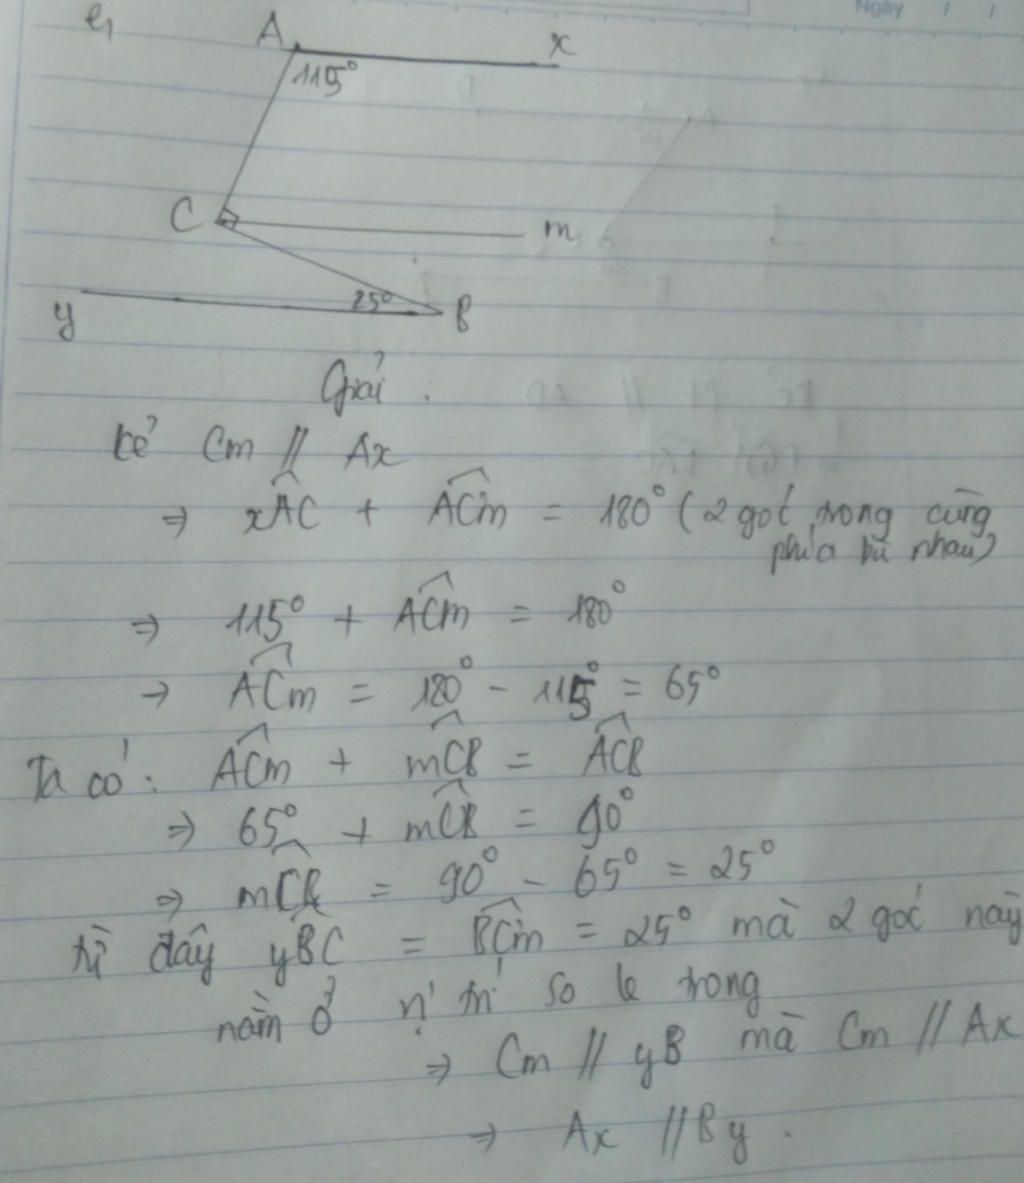 Ngày / /
e,
A x
115°
C m
y 25° B
Giải :
kẻ Cm // Ax
⇒ xÂC + AĈm = 180° (2 góc trong cùng
phía bù nhau)
⇒ 115° + AĈm = 180°
→ AĈm = 180° - 115° = 65°
Ta có : AĈm + mĈB = AĈB
⇒ 65° + mĈB = 90°
⇒ mĈB = 90° - 65° = 25°
từ đây yB̂C = BĈm = 25° mà 2 góc này
nằm ở vị trí so le trong
⇒ Cm // yB mà Cm // Ax
→ Ax // By .